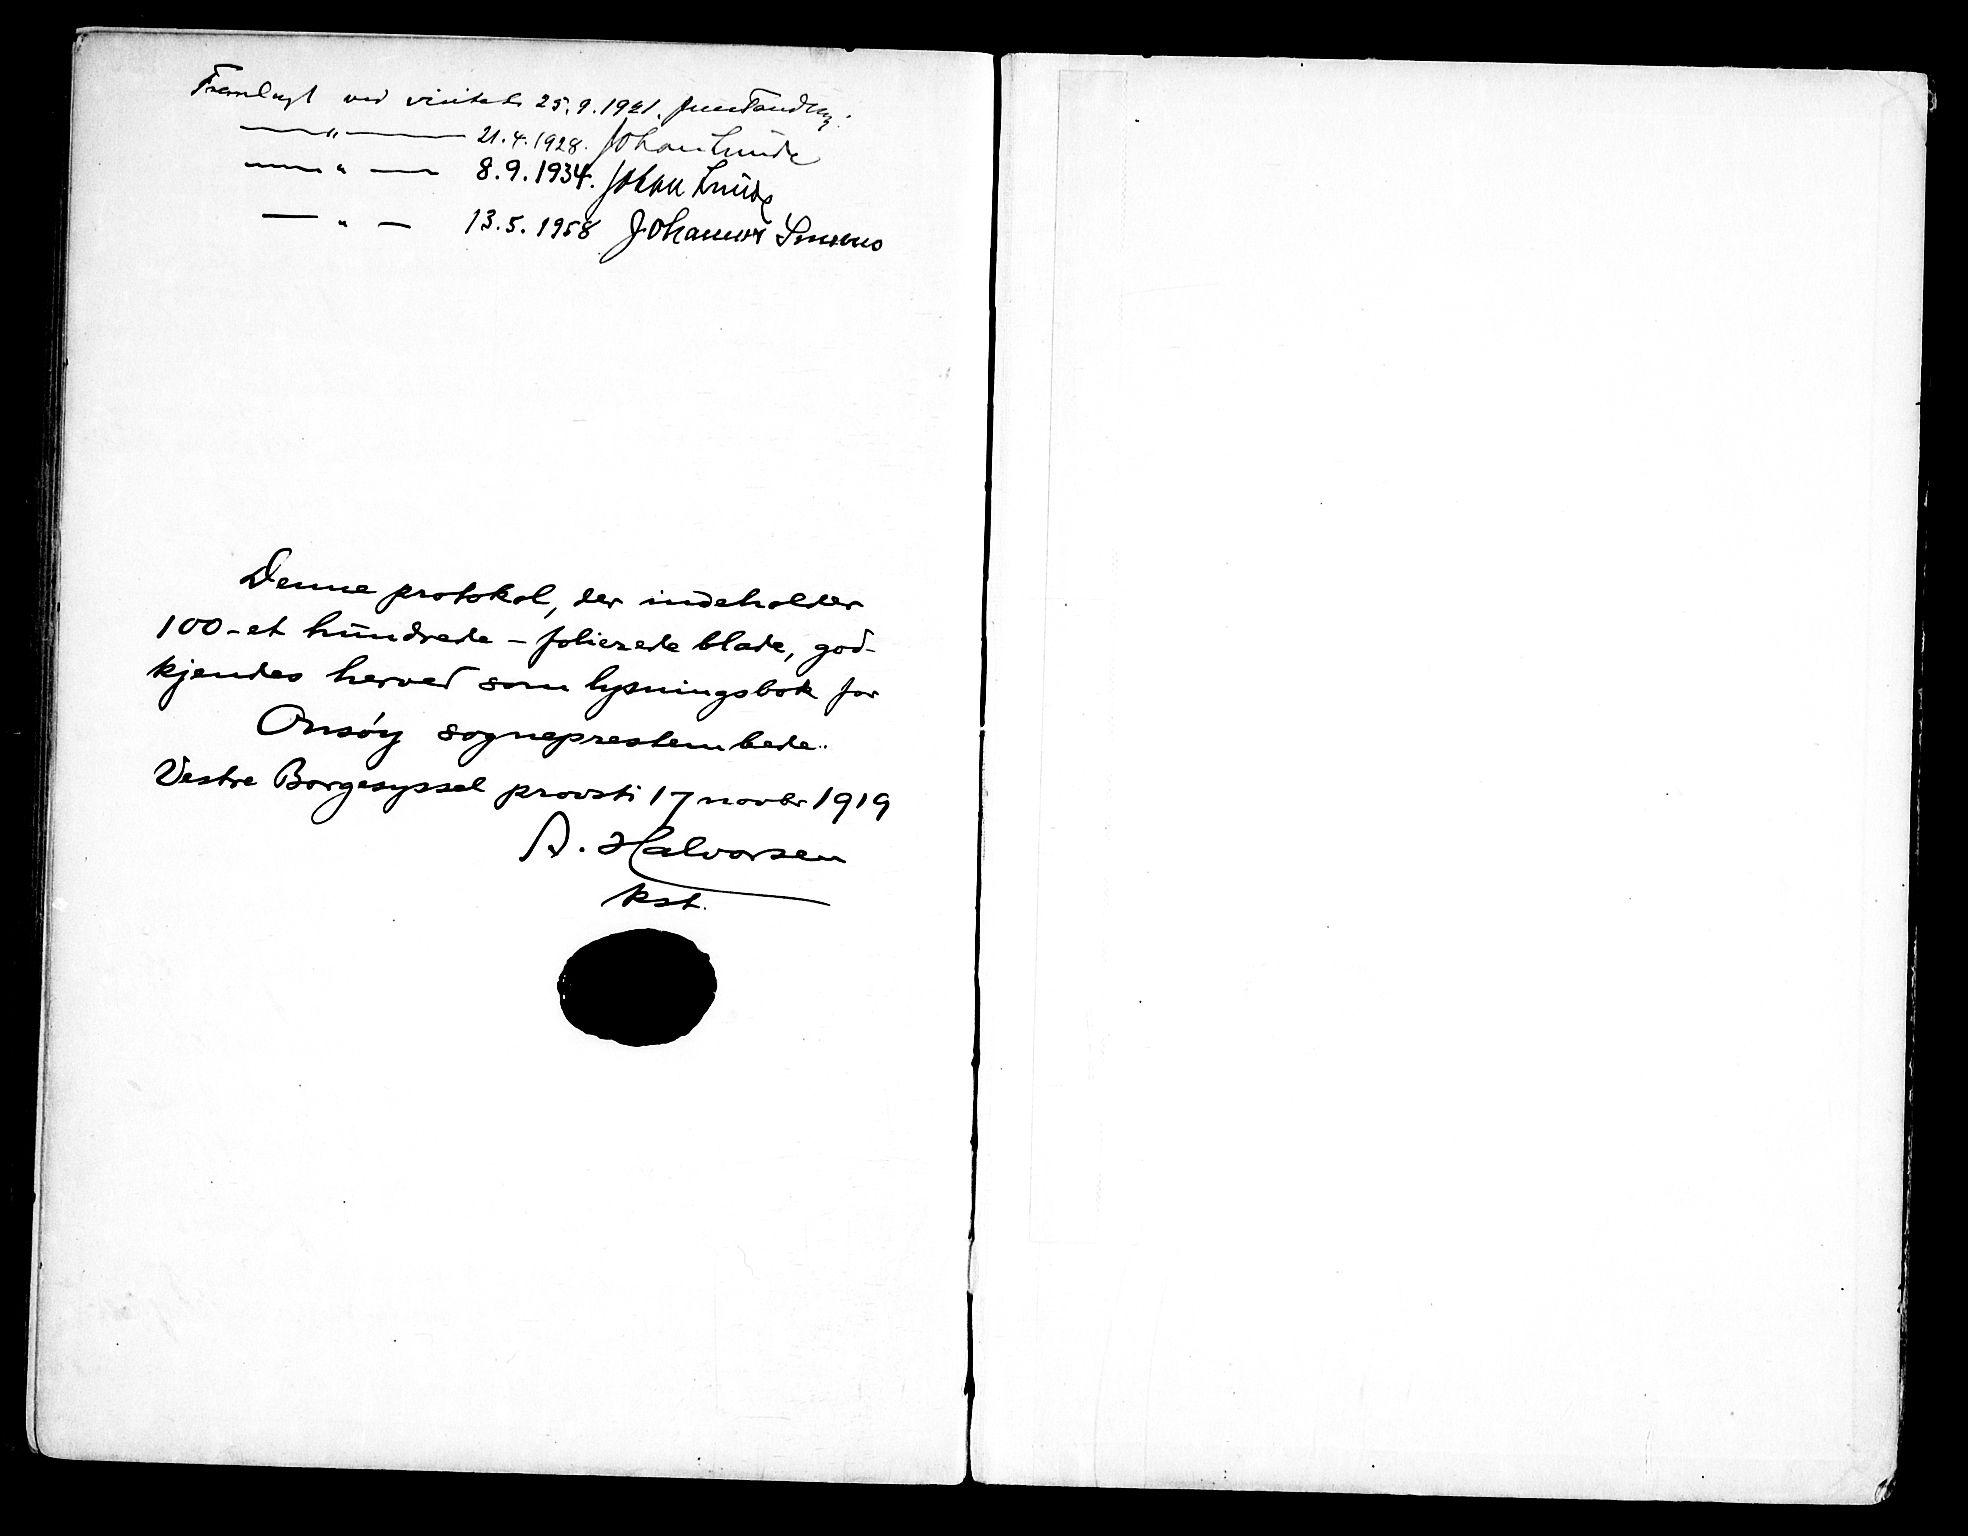 Fremlagt ved visitats 25.9.1921. Jens Tandberg.
— " — 21.4.1928. Johan Lunde
— " — 8.9.1934. Johan Lunde
— " — 13.5.1958 Johannes Smemo
Denne protokol, der indeholder
100 - et hundrede - folierede blade, god-
kjendes herved som lysningsbok for
Onsøy sogneprestembede.
Vestre Borgesyssel provsti 17 novbr 1919
A. Halvorsen
kst.